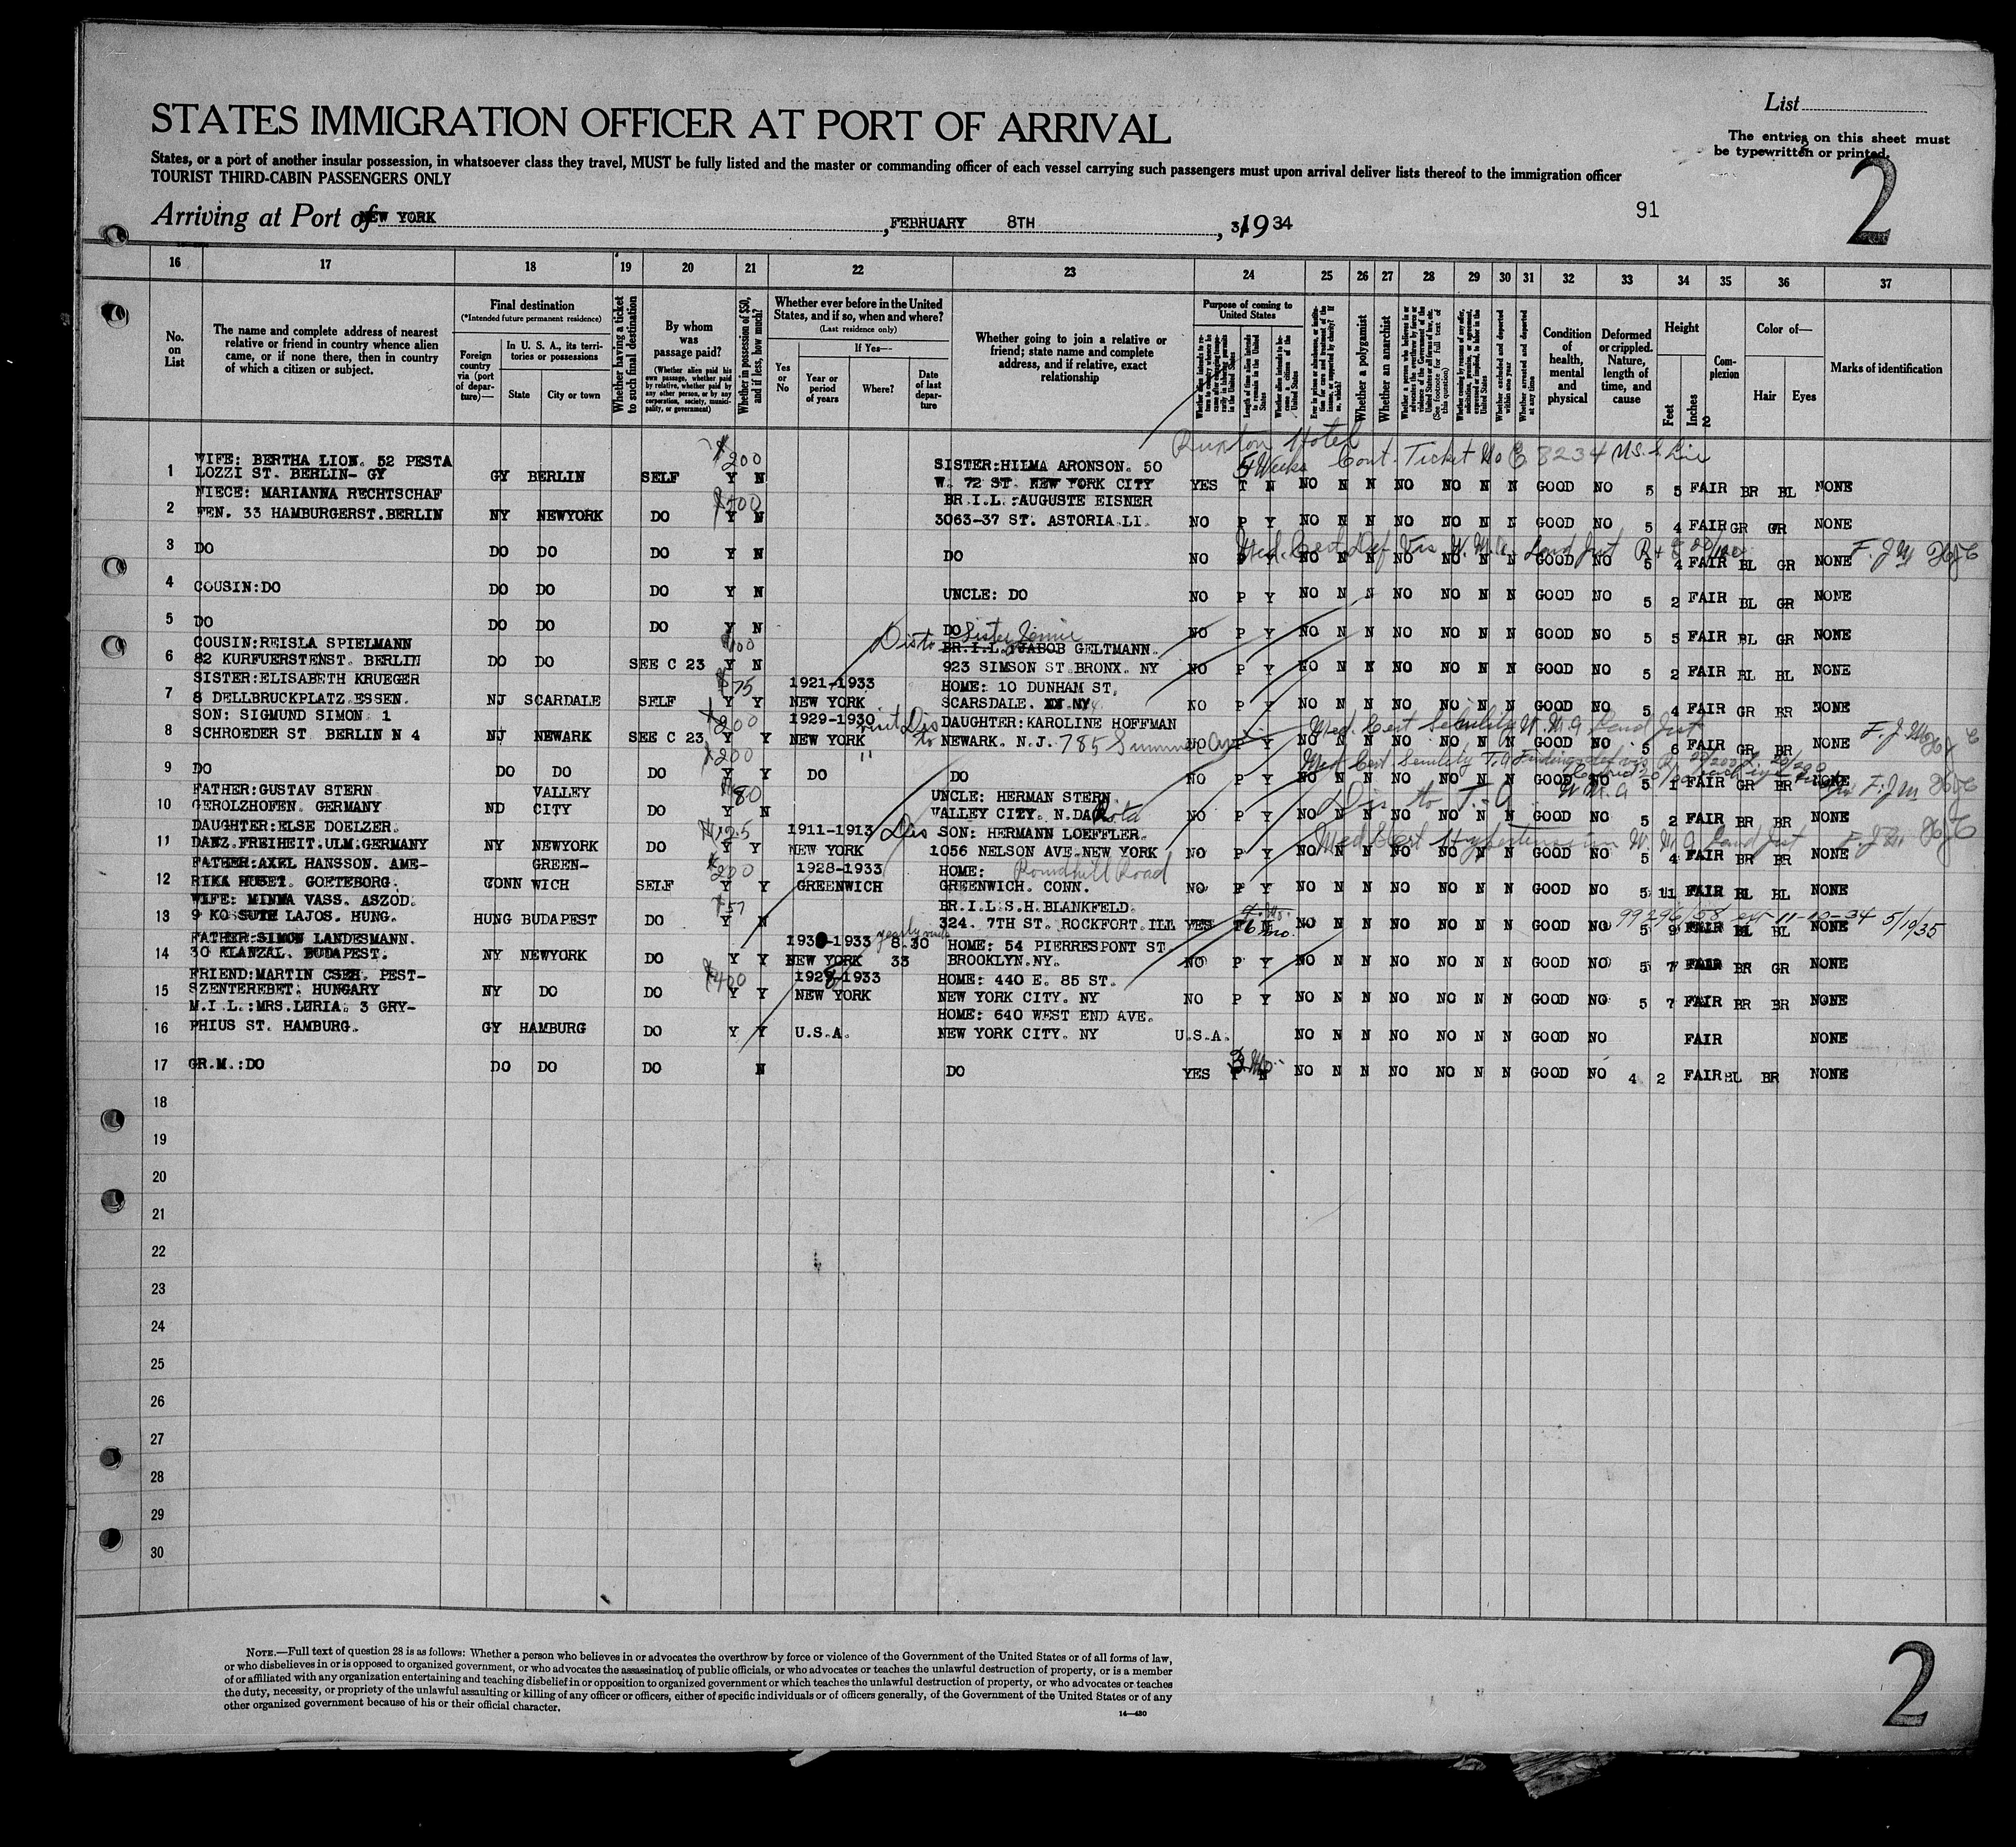 List
STATES IMMIGRATION OFFICER AT PORT OF ARRIVAL
The entries on this sheet must
be typewritten or printed.
States, or a port of another insular possession, in whatsoever class they travel, MUST be fully listed and the master or commanding officer of each vessel carrying such passengers must upon arrival deliver lists thereof to the immigration officer
TOURIST THIRD-CABIN PASSENGERS ONLY
2
Arriving at Port of NEW YORK, FEBRUARY 8TH, 1934
91
16 17 18 19 20 21 22 23 24 25 26 27 28 29 30 31 32 33 34 35 36 37
No. on List
The name and complete address of nearest relative or friend in country whence alien came, or if none there, then in country of which a citizen or subject.
Final destination
(*Intended future permanent residence)
Foreign country via (port of departure)—
In U. S. A., its territories or possessions
State
City or town
Whether having a ticket to such final destination
By whom was passage paid?
(Whether alien paid his own passage, whether paid by relative, whether paid by any other person, or by any corporation, society, municipality, or government)
Whether in possession of $50, and if less, how much?
Whether ever before in the United States, and if so, when and where?
(Last residence only)
Yes or No
If Yes—
Year or period of years
Where?
Date of last departure
Whether going to join a relative or friend; state name and complete address, and if relative, exact relationship
Purpose of coming to United States
Length of time alien intends to remain in the United States
Whether alien intends to become a citizen of the United States
Whether a polygamist
Whether an anarchist
(See footnote for full text of this question)
Whether excluded and deported within one year
Whether arrested and deported at any time
Condition of health, mental and physical
Deformed or crippled. Nature, length of time, and cause
Height
Feet
Inches
Complexion
Color of—
Hair
Eyes
Marks of identification
Ruxton Hotel
Cont. Ticket No 8234 U.S. Line
1 WIFE: BERTHA LION. 52 PESTA LOZZI ST. BERLIN- GY GY BERLIN SELF $200 Y N SISTER:HILMA ARONSON. 50 W. 72 ST. NEW YORK CITY YES 5 Weeks T N NO N N NO NO N N GOOD NO 5 5 FAIR BR BL NONE
2 NIECE: MARIANNA RECHTSCHAF FEN. 33 HAMBURGERST.BERLIN NY NEWYORK DO $500 Y N BR.I.L.:AUGUSTE EISNER 3063-37 ST. ASTORIA.LI. NO P Y NO N N NO NO N N GOOD NO 5 4 FAIR GR GR NONE
3 DO DO DO DO Y N DO NO P Y NO N N NO NO N N GOOD NO 5 4 FAIR BL GR NONE
Med. Cert Def Vis W.M.A. Land Just
4 COUSIN:DO DO DO DO Y N UNCLE: DO NO P Y NO N N NO NO N N GOOD NO 5 2 FAIR BL GR NONE
5 DO DO DO DO Y N DO NO P Y NO N N NO NO N N GOOD NO 5 5 FAIR BL GR NONE
6 COUSIN:REISLA SPIELMANN 82 KURFUERSTENST. BERLIN DO DO SEE C 23 $100 Y N Dis to Sister Jennie BR.I.L.:JABOB GELTMANN. 923 SIMSON ST.BRONX. NY NO P Y NO N N NO NO N N GOOD NO 5 2 FAIR BL BL NONE
7 SISTER:ELISABETH KRUEGER 8 DELLBRUCKPLATZ.ESSEN. NJ SCARDALE SELF $75 Y Y 1921-1933 NEW YORK HOME: 10 DUNHAM ST. SCARSDALE. NY NO P Y NO N N NO NO N N GOOD NO 5 4 FAIR GR BR NONE
8 SON: SIGMUND SIMON 1 SCHROEDER ST BERLIN N 4 NJ NEWARK SEE C 23 $200 Y Y 1929-1930 NEW YORK visit Dis to DAUGHTER:KAROLINE HOFFMAN NEWARK. N.J. 785 Summer Ave NO P Y NO N N NO NO N N GOOD NO 5 6 FAIR GR BR NONE
Med. Cert Senility W.M.A Land Just
9 DO DO DO DO $200 Y Y DO DO NO P Y NO N N NO NO N N GOOD NO 5 1 FAIR GR BR NONE
Med Cert Senility
10 FATHER:GUSTAV STERN GEROLZHOFEN. GERMANY ND VALLEY CITY DO $80 Y N UNCLE: HERMAN STERN. VALLEY CITY. N.DAKota NO P Y NO N N NO NO N N GOOD NO 5 2 FAIR BR BR NONE
11 DAUGHTER:ELSE DOELZER. DANZ.FREIHEIT.ULM.GERMANY NY NEWYORK DO $125 Y Y 1911-1913 NEW YORK Dis SON: HERMANN LOEFFLER. 1056 NELSON AVE-NEW YORK NO P Y NO N N NO NO N N GOOD NO 5 4 FAIR BR BR NONE
Med Cert Hypertension W.M.A Land Just
12 FATHER:AXEL HANSSON. AME- RIKA HUSET. GOETEBORG. CONN GREEN- WICH SELF $200 Y Y 1928-1933 GREENWICH HOME: Roundhill Road GREENWICH. CONN. NO P Y NO N N NO NO N N GOOD NO 5 11 FAIR BL BL NONE
13 WIFE: MINNA VASS. ASZOD. 9 KOSSUTH LAJOS. HUNG. HUNG BUDAPEST DO $57 Y N BR.I.L:S.H.BLANKFELD. 324. 7TH ST. ROCKFORT.ILL YES 6 mo. T N NO N N NO NO N N GOOD NO 5 9 FAIR BL BL NONE
99296/58 ext 11-10-34 5/10/35
14 FATHER:SIMON LANDESMANN. 30 KLANZAL. BUDAPEST. NY NEWYORK DO Y Y 1930-1933 NEW YORK 8.30 33 HOME: 54 PIERRESPONT ST. BROOKLYN.NY. NO P Y NO N N NO NO N N GOOD NO 5 7 FAIR BR GR NONE
15 FRIEND:MARTIN CSEH. PEST- SZENTEREBET. HUNGARY NY DO DO $400 Y Y 1928-1933 NEW YORK HOME: 440 E. 85 ST. NEW YORK CITY. NY NO P Y NO N N NO NO N N GOOD NO 5 7 FAIR BR BR NONE
16 M.I L.:MRS.LURIA. 3 GRY- PHIUS ST. HAMBURG. GY HAMBURG DO Y Y U.S.A. HOME: 640 WEST END AVE. NEW YORK CITY. NY U.S.A. NO N N NO NO N N GOOD NO FAIR NONE
17 GR.M.:DO DO DO DO N DO YES 3 Mo. T N NO N N NO NO N N GOOD NO 4 2 FAIR BL BR NONE
18
19
20
21
22
23
24
25
26
27
28
29
30
NOTE.—Full text of question 28 is as follows: Whether a person who believes in or advocates the overthrow by force or violence of the Government of the United States or of all forms of law,
or who disbelieves in or is opposed to organized government, or who advocates the assassination of public officials, or who advocates or teaches the unlawful destruction of property, or is a member
of or affiliated with any organization entertaining and teaching disbelief in or opposition to organized government or which teaches the unlawful destruction of property, or who advocates or teaches
the duty, necessity, or propriety of the unlawful assaulting or killing of any officer or officers, either of specific individuals or of officers generally, of the Government of the United States or of any
other organized government because of his or their official character.
14—430
2